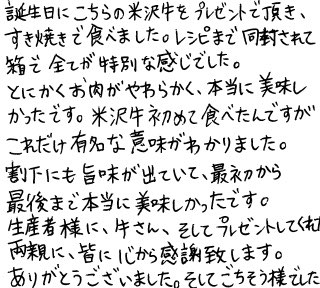 誕生日にこちらの米沢牛をプレゼントで頂き、
すき焼きで食べました。レシピまで同封されて
箱で全てが特別な感じでした。
とにかくお肉がやわらかく、本当に美味し
かったです。米沢牛初めて食べたんですが
これだけ有名な意味がわかりました。
割下にも旨味が出ていて、最初から
最後まで本当に美味しかったです。
生産者様に、牛さん、そしてプレゼントしてくれた
両親に、皆に心から感謝致します。
ありがとうございました。そしてごちそう様でした